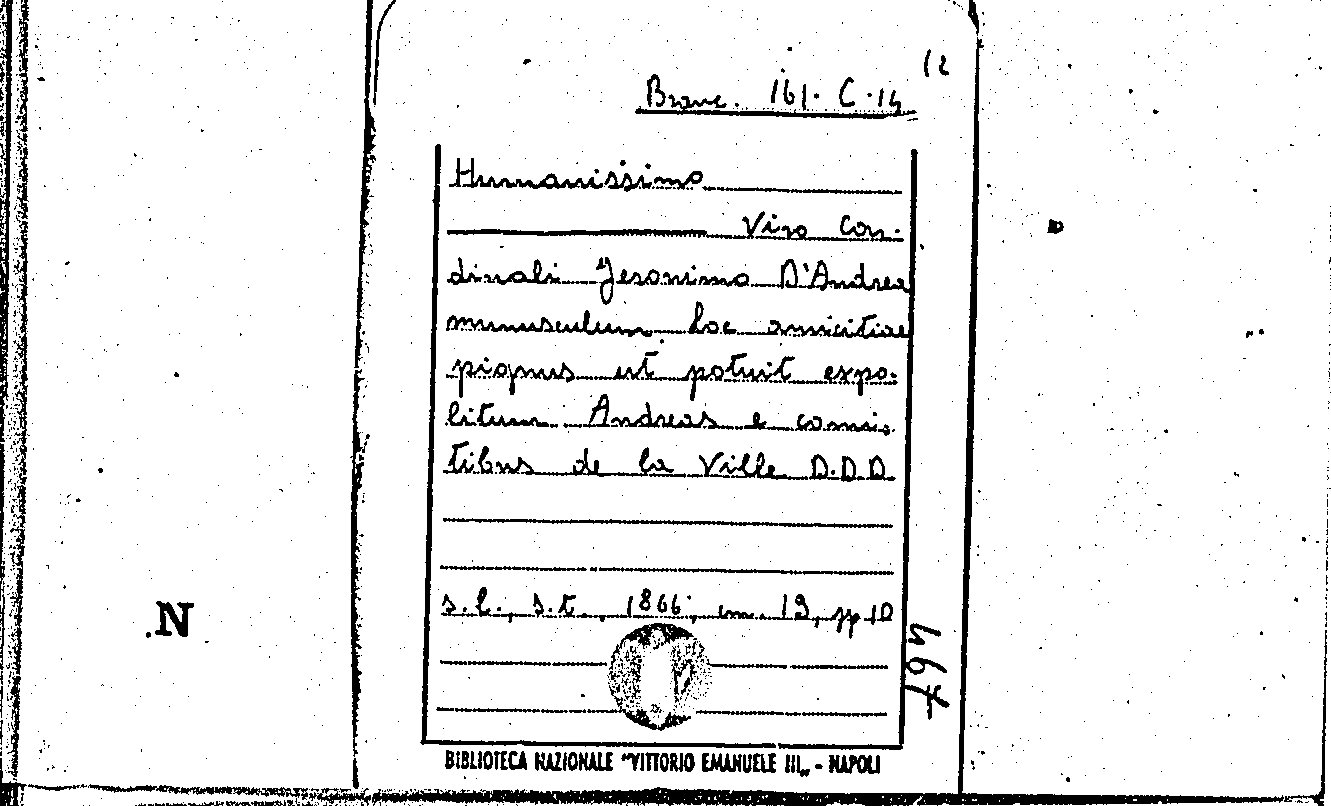 12
Branc. 161. C. 14
Humanissimo
Viro Car-
dinali Jeronimo D'Andrea
munusculum hoc amicitiae
pignus ut potuit expo-
litum Andreas e comi-
tibus de la Ville D.D.D.
s.l., s.t., 1866, cm. 19, pp 10
467
BIBLIOTECA NAZIONALE "VITTORIO EMANUELE III„ - NAPOLI
N